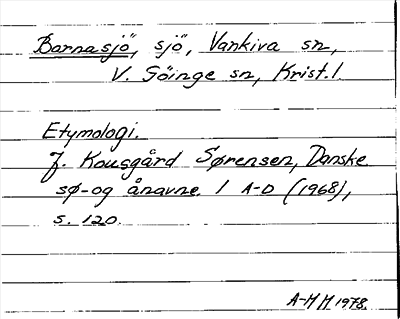 Barnasjö, sjö, Vankiva sn,
V. Göinge sn, Krist. l.
Etymologi.
Jf. Kousgård Sørensen, Danske
sø- og ånavne. 1 A-D (1968),
s. 120.
A-M H 1978.